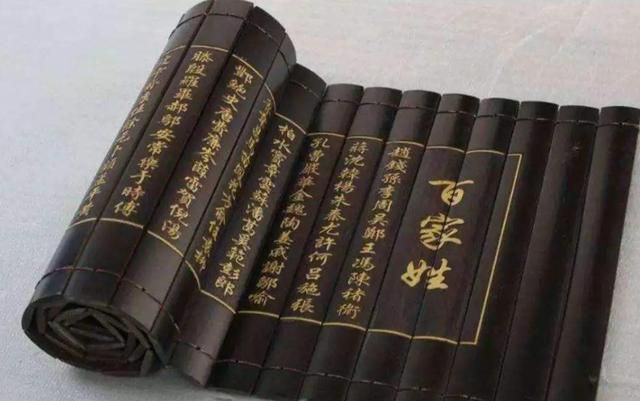 百家姓
趙錢孫李周吳鄭王馮陳褚衛
蔣沈韓楊朱秦尤許何呂施張
孔曹嚴華金魏陶姜戚謝鄒喻
柏水竇章雲蘇潘葛奚範彭郎
酆鮑史唐費廉岑薛雷賀倪湯
滕殷羅畢郝鄔安常樂于時傅